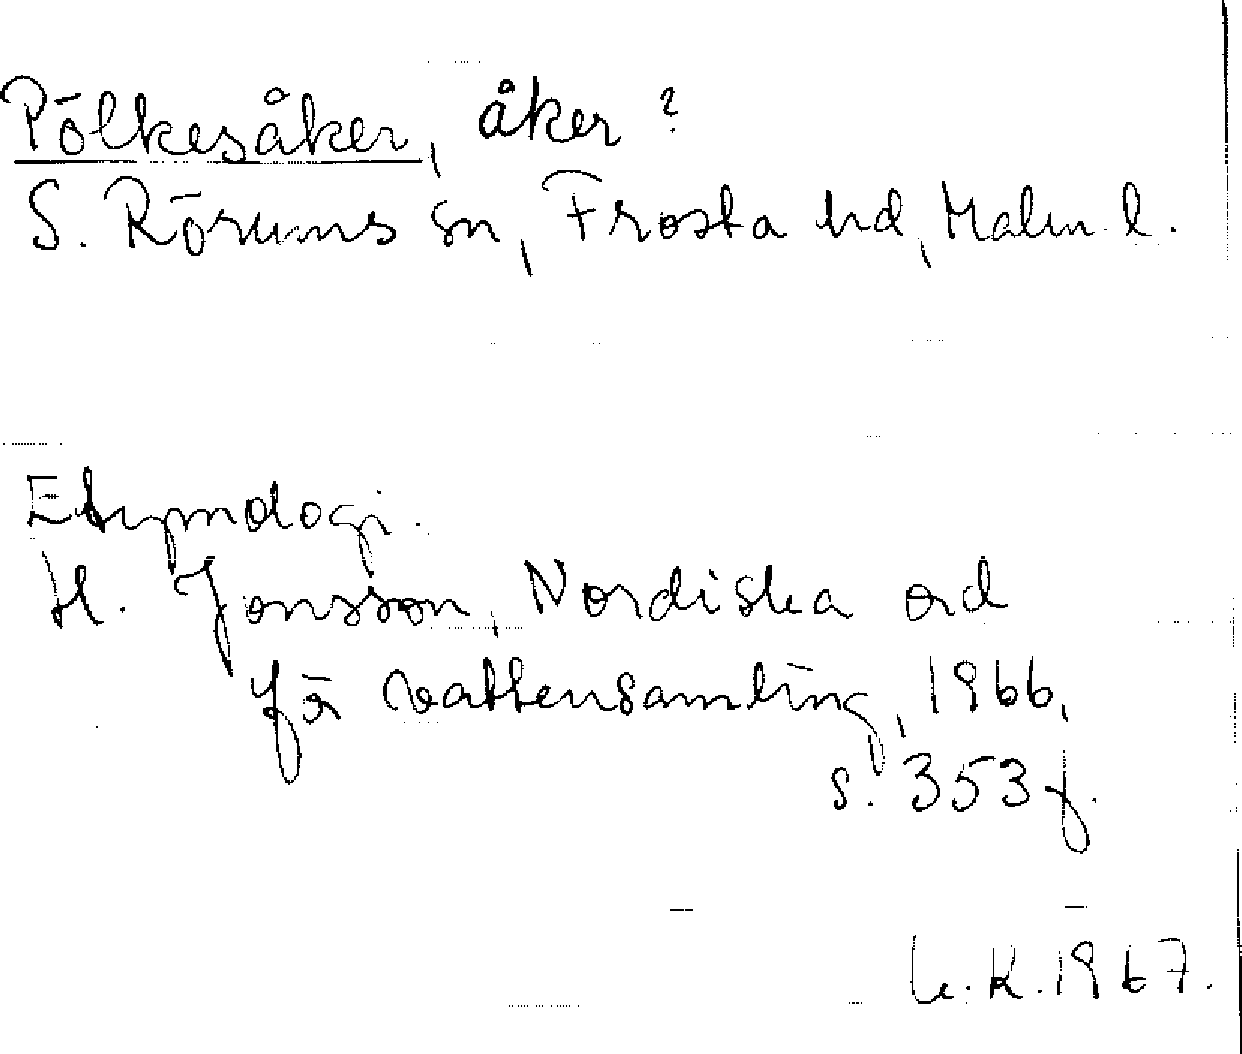 Pölkesåker, åker?
S. Rörums sn, Frosta hd, Malm. l.
Etymologi.
H. Jonsson, Nordiska ord
för vattensamling, 1966,
s. 353 f.
K. 1967.